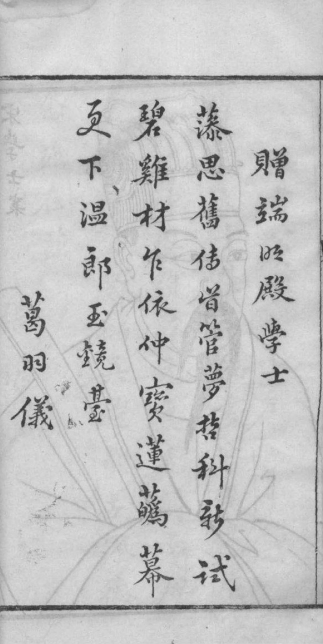 贈端明殿學士
藻思舊傳首管夢哲科新試
碧雞材乍依仲寶蓮幕
更下溫郎玉鏡臺
葛羽儀